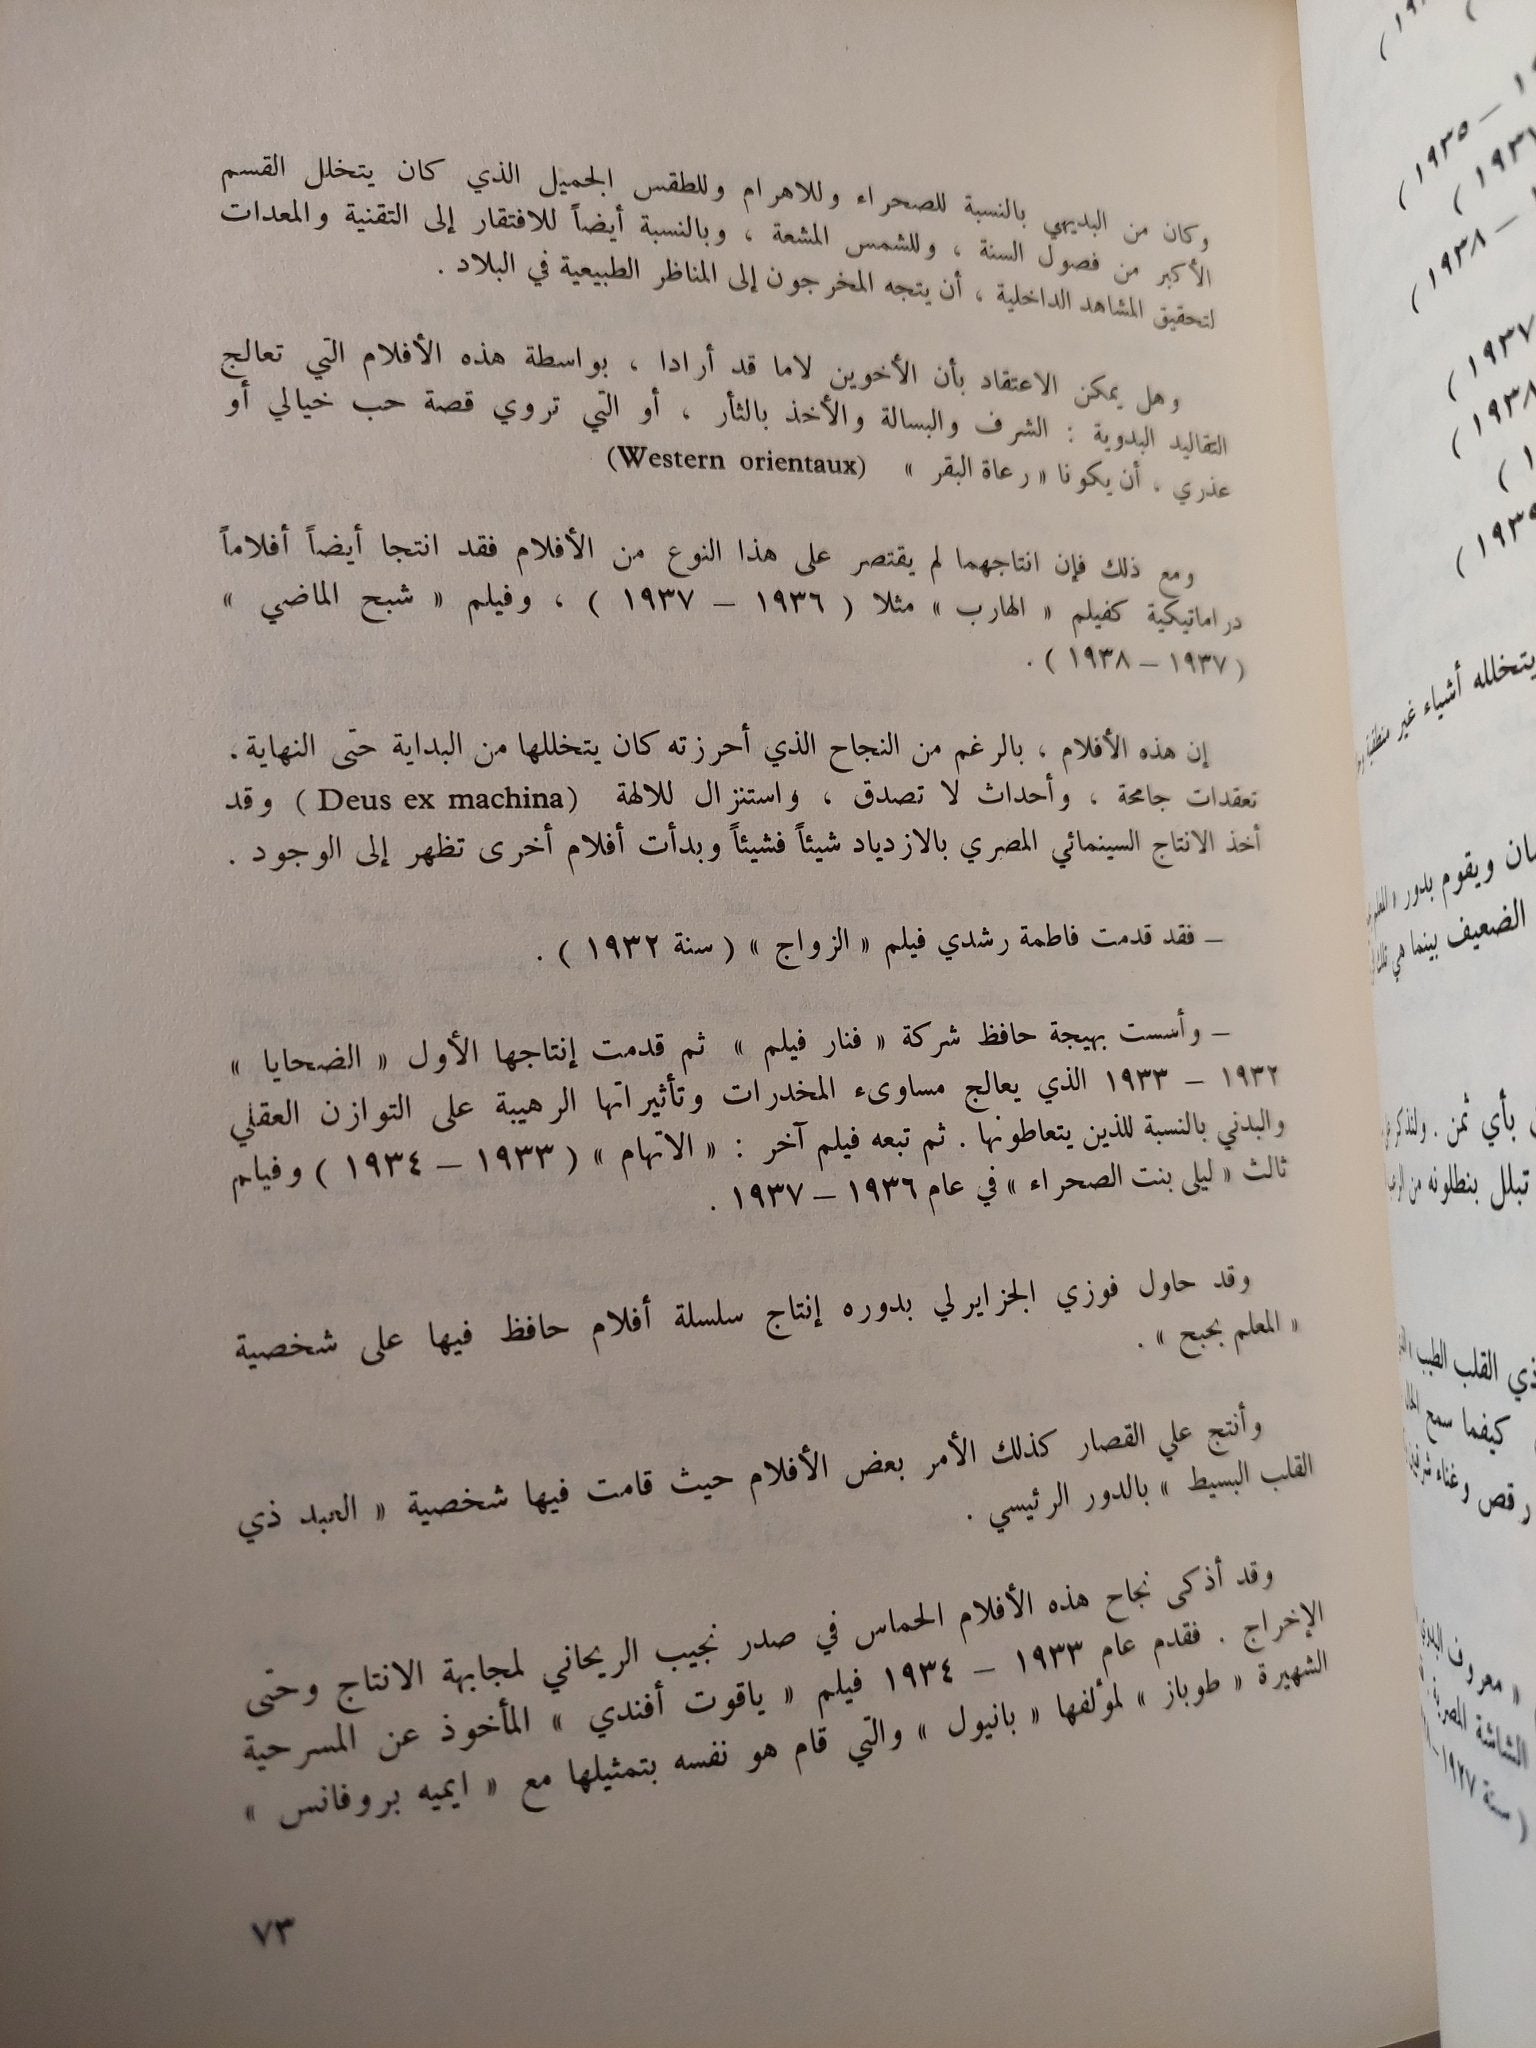 وكان من البديهي بالنسبة للصحراء وللاهرام وللطقس الجميل الذي كان يتخلل القسم
الأكبر من فصول السنة ، وللشمس المشعة ، وبالنسبة أيضاً للافتقار إلى التقنية والمعدات
لتحقيق المشاهد الداخلية ، أن يتجه المخرجون إلى المناظر الطبيعية في البلاد .
وهل يمكن الاعتقاد بأن الأخوين لاما قد أرادا ، بواسطة هذه الأفلام التي تعالج
التقاليد البدوية : الشرف والبسالة والأخذ بالثأر ، أو التي تروي قصة حب خيالي أو
عذري ، أن يكونا « رعاة البقر » (Western orientaux)
ومع ذلك فإن انتاجهما لم يقتصر على هذا النوع من الأفلام فقد انتجا أيضاً أفلاماً
دراماتيكية كفيلم « الهارب » مثلا ( ١٩٣٦ – ١٩٣٧ ) ، وفيلم « شبح الماضي »
( ١٩٣٧ – ١٩٣٨ ) .
إن هذه الأفلام ، بالرغم من النجاح الذي أحرزته كان يتخللها من البداية حتى النهاية .
تعقدات جامحة ، وأحداث لا تصدق ، واستنزال للالهة (Deus ex machina ) وقد
أخذ الانتاج السينمائي المصري بالازدياد شيئاً فشيئاً وبدأت أفلام أخرى تظهر إلى الوجود .
– فقد قدمت فاطمة رشدي فيلم « الزواج » ( سنة ١٩٣٢ ) .
– وأسست بهيجة حافظ شركة « فنار فيلم » ثم قدمت إنتاجها الأول « الضحايا »
١٩٣٢ – ١٩٣٣ الذي يعالج مساوىء المخدرات وتأثيراتها الرهيبة على التوازن العقلي
والبدني بالنسبة للذين يتعاطونها . ثم تبعه فيلم آخر : « الاتهام » ( ١٩٣٣ – ١٩٣٤ ) وفيلم
ثالث « ليلى بنت الصحراء » في عام ١٩٣٦ – ١٩٣٧ .
وقد حاول فوزي الجزايرلي بدوره إنتاج سلسلة أفلام حافظ فيها على شخصية
« المعلم بحبح » .
وأنتج علي القصار كذلك الأمر بعض الأفلام حيث قامت فيها شخصية « العبد ذي
القلب البسيط » بالدور الرئيسي .
وقد أذكى نجاح هذه الأفلام الحماس في صدر نجيب الريحاني لمجابهة الانتاج وحتى
الإخراج . فقدم عام ١٩٣٣ – ١٩٣٤ فيلم « ياقوت أفندي » المأخوذ عن المسرحية
الشهيرة « طوباز » لمؤلفها « بانيول » والتي قام هو نفسه بتمثيلها مع « ايميه بروفانس »
٧٣
– ١٩٣٥ )
– ١٩٣٨ )
١٩٣٧ )
يتخلله أشياء غير منطقية
ويقوم بدور
الضعيف بينما هي
بأي ثمن .
تبلل بنطلونه من
ذي القلب الطيب
كيفما سمح
رقص وغناء
« معروف
الشاشة المصرية
( سنة ١٩٢٧